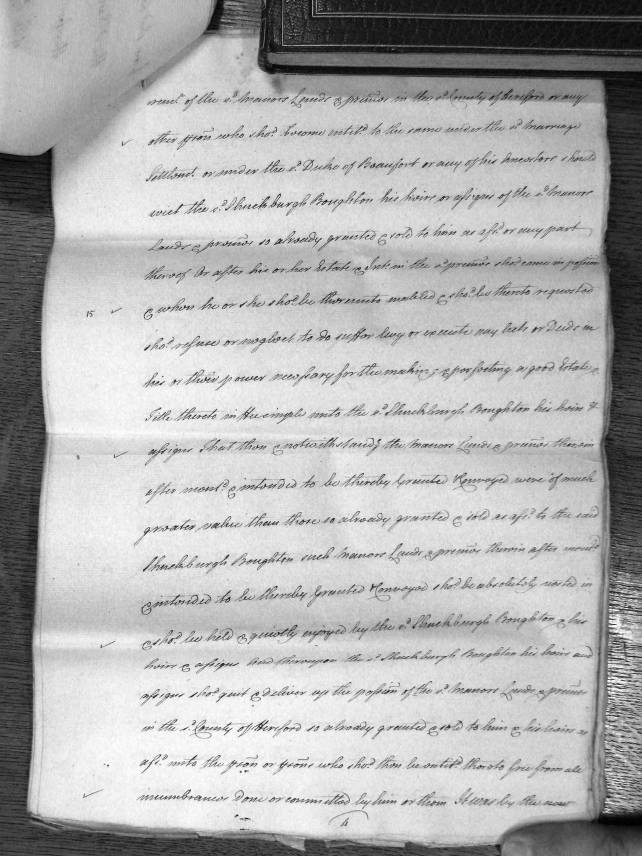 ment. of the sd. Manors Lands & prems in the sd. County of Hereford or any
other pson who shod. become entitd. to the same under the sd. Marriage
Settlemt. or under the sd. Duke of Beaufort or any of his Ancestors should
evict the sd. Shuckburgh Boughton his heirs or assigns of the sd. Manors
Lands & prems so already granted & sold to him as afsd. or any part
thereof Or after his or her Estate & Intt. in the sd. prems shod. come in possion
15 & when he or she shod. be thereunto enabled & shod. be thereto requested
shod. refuse or neglect to do suffer levy or execute any Acts or Deeds in
his or their power necessary for the making & perfecting a good Estate &
Title thereto in Fee simple unto the sd. Shuckburgh Boughton his heirs &
assigns That then & notwithstandg. the Manors Lands & prems therein
after mentd. & intended to be thereby Granted & Conveyed were of much
greater value than those so already granted & sold as afsd. to the said
Shuckburgh Boughton such Manors Lands & prems therein after mentd.
& intended to be thereby Granted & Conveyed shod. be absolutely vested in
& shod. be held & quietly enjoyed by the sd. Shuckburgh Boughton & his
heirs & assigns And thereupon the sd. Shuckburgh Boughton his heirs and
assigns shod. quit & deliver up the possion of the sd. Manors Lands & prems
in the sd. County of Hereford so already granted & sold to him & his heirs as
afsd. unto the pson or psons who shod. then be entitd. thereto free from all
incumbrances Done or committed by him or them It was by the now
4